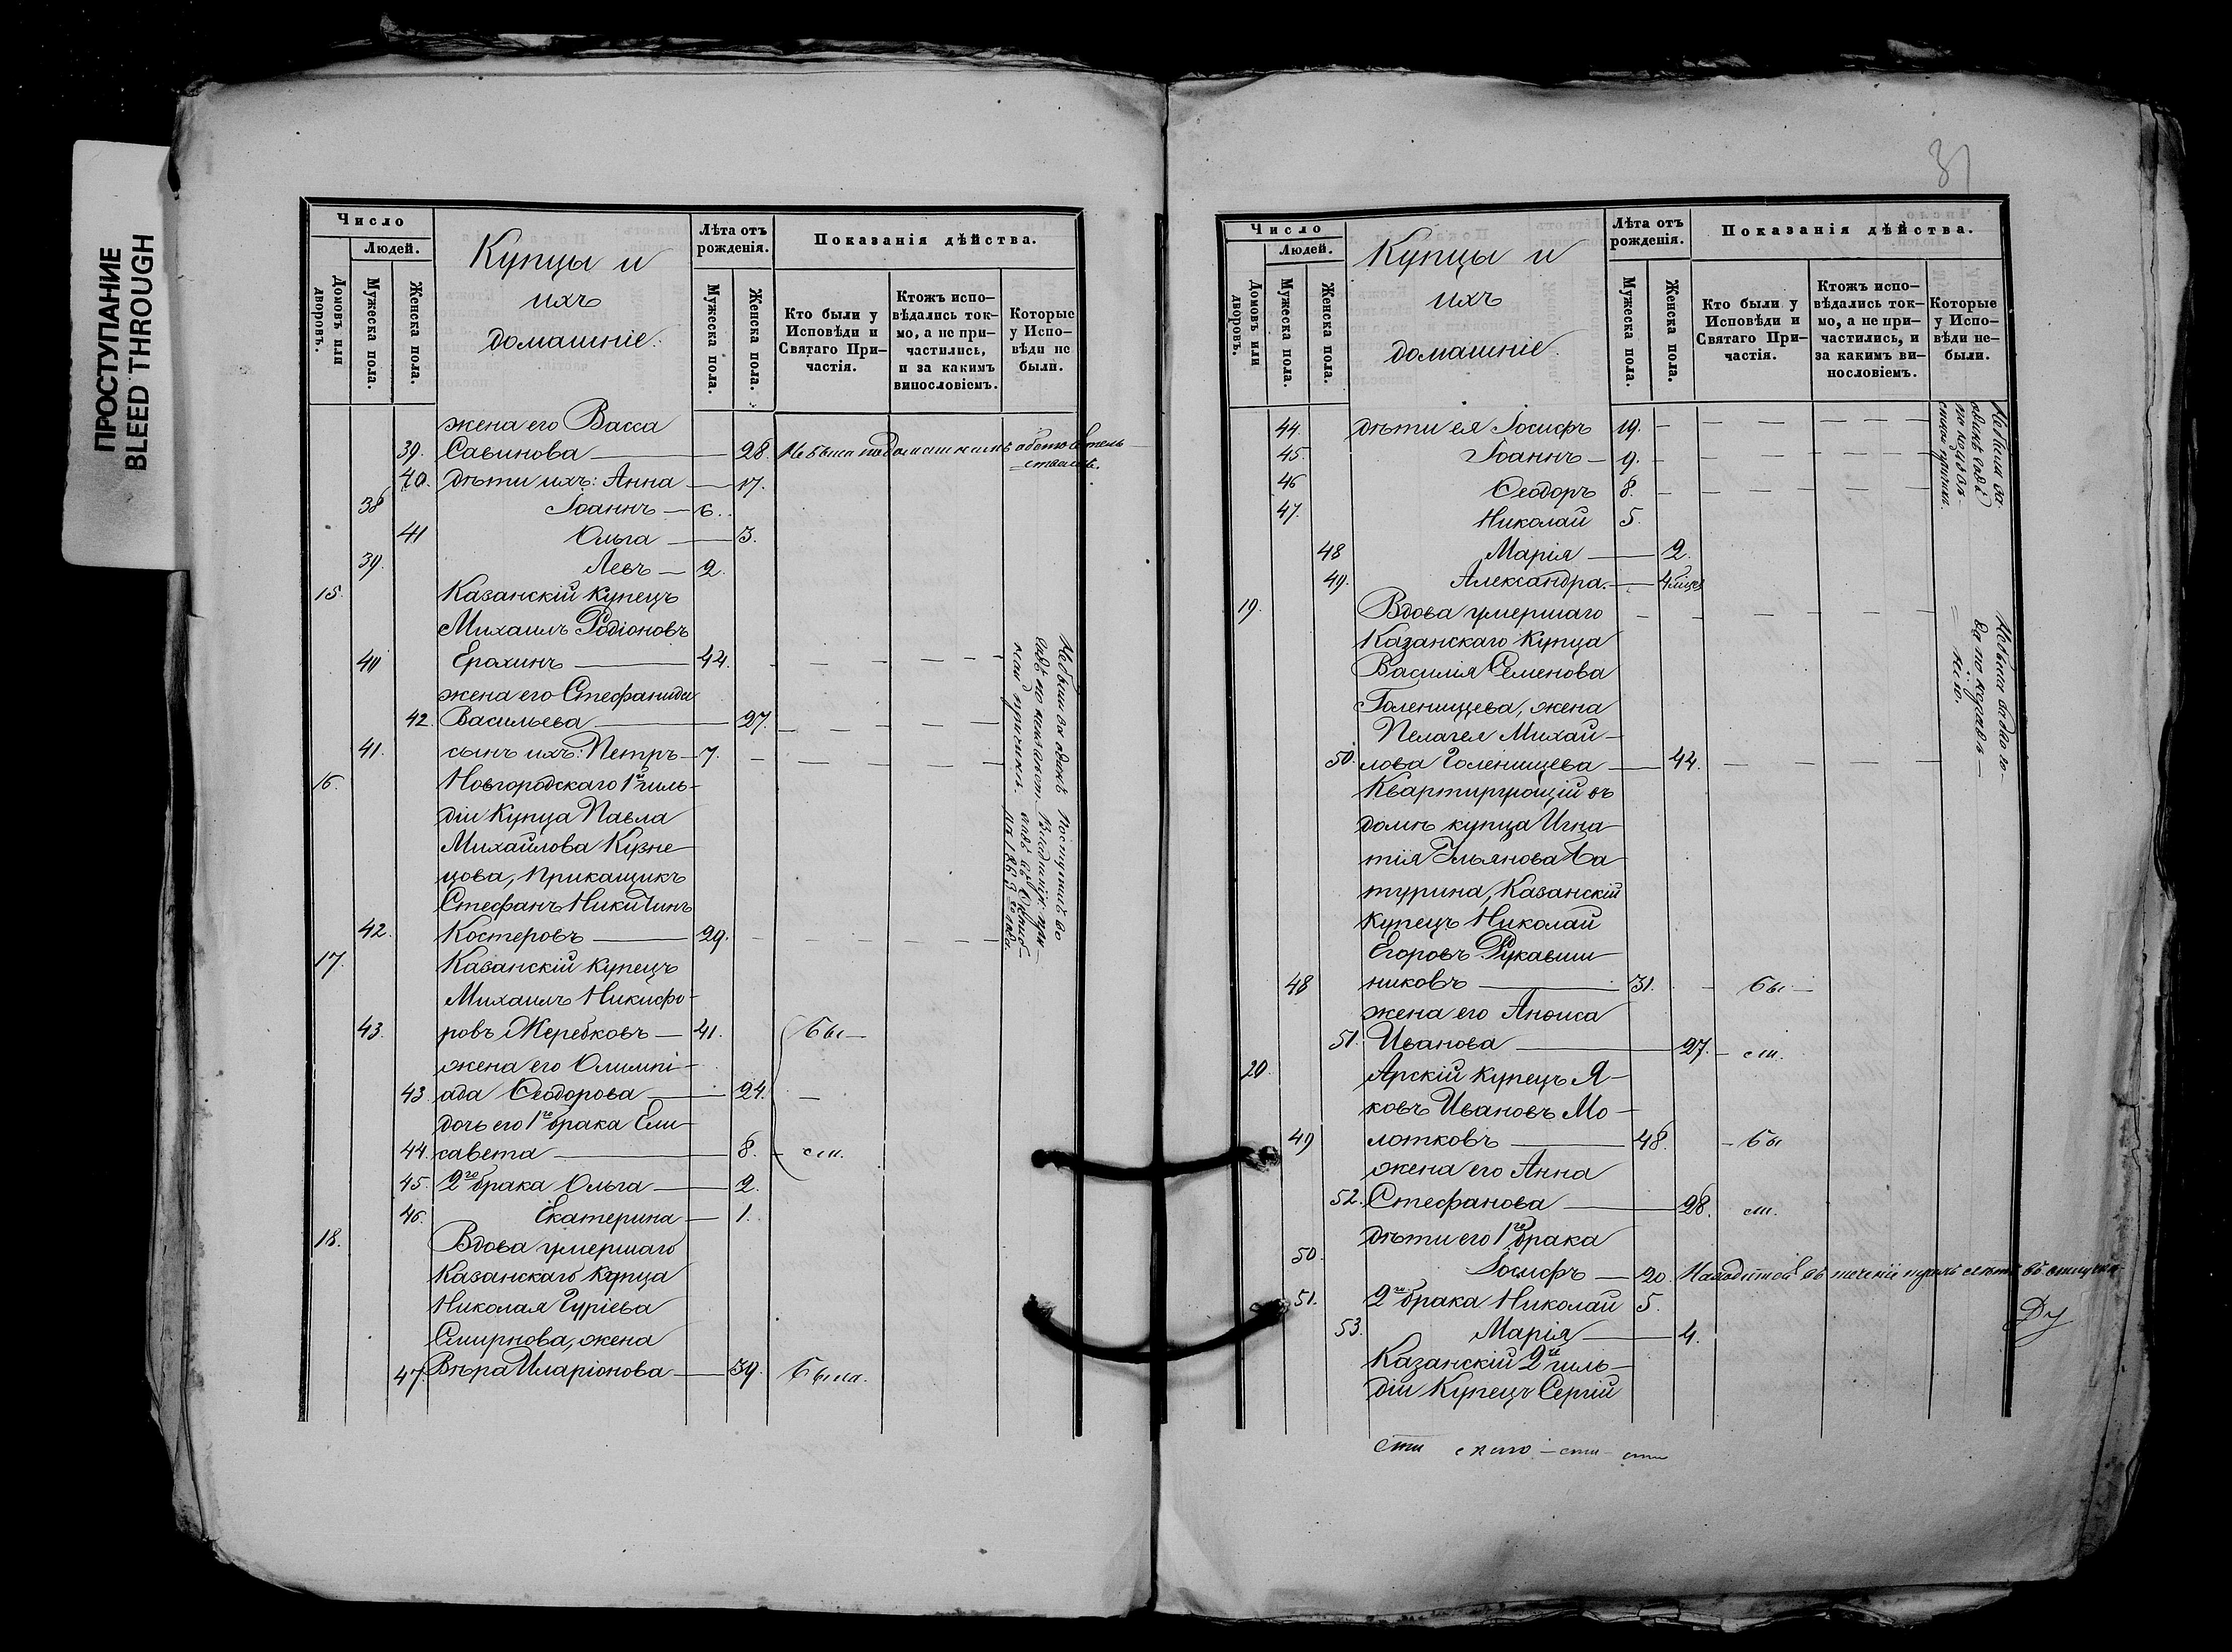 ПРОСТУПАНИЕ
BLEED THROUGH
Число
Людей.
Домовъ или дворовъ.
Мужеска пола.
Женска пола.
Купцы и
ихъ
домашніе.
Лѣта отъ рожденія.
Мужеска пола.
Женска пола.
Показанія дѣйства.
Кто были у Исповѣди и Святаго При-
частія.
Ктожъ испо-
вѣдались ток-
мо, а не при-
частились,
и за какимъ
винословіемъ.
Которые
у Испо-
вѣди не
были.
жена его Васса
39. Савинова — 28. Не была по домашнимъ обстоятель-
ствамъ.
40. дѣти ихъ: Анна — 17.
38 Іоаннъ — 6.
41 Ольга — 3.
39. Левъ — 2.
15. Казанскій купецъ
Михаилъ Родіоновъ
40 Ерохинъ — 42.
жена его Стефанида
42. Васильева — 27.
41. сынъ ихъ: Петръ — 7.
16. Новгородскаго 1й гиль-
діи Купца Павла
Михайлова Кузне-
цова, Прикащикъ
Стефанъ Никитинъ
42. Костеровъ — 29.
17. Казанскій купецъ
Михаилъ Никифо-
43. ровъ Жеребковъ — 41. Бы-
жена его Олимпі-
43. ада Ѳеодорова — 24. —
дочь его 1го брака Ели-
44. савета — 8. — ли.
45. 2го брака Ольга — 2.
46. Екатерина — 1.
18. Вдова умершаго
Казанскаго Купца
Николая Гуріева
Смирнова, жена
47. Вѣра Иларіонова — 39. Была.
31
Число
Людей.
Домовъ или дворовъ.
Мужеска пола.
Женска пола.
Купцы и
ихъ
домашніе.
Лѣта отъ рожденія.
Мужеска пола.
Женска пола.
Показанія дѣйства.
Кто были у
Исповѣди и
Святаго При-
частія.
Ктожъ испо-
вѣдались ток-
мо, а не при-
частились, и
за какимъ ви-
нословіемъ.
Которые
у Испо-
вѣди не-
были.
44. дѣти ея Іосифъ 19.
45. Іоаннъ — 9.
46 Ѳеодоръ 8.
47. Николай 5.
48 Марія — 2.
49. Александра. —
19. Вдова умершаго
Казанскаго Купца
Василія Семенова
Голенищева, жена
Пелагея Михай-
50. лова Голенищева — 44.
Квартирующій въ
домѣ купца Игна-
тія Ульянова Ба-
турина, Казанскій
купецъ Николай
Егоровъ Рукавиш-
48 никовъ — 31. Бы-
жена его Анѳиса
51. Иванова — 27. — ли.
20. Арскій купецъ Я-
ковъ Ивановъ Мо-
49 лотковъ — 48. — Бы
жена его Анна
52. Стефанова — 28. ли.
дѣти его 1го брака
50. Іосифъ — 20. Находится въ теченіе
51. 2го брака Николай 5.
53. Марія — 4.
Казанскій 2й гиль-
діи Купецъ Сергій